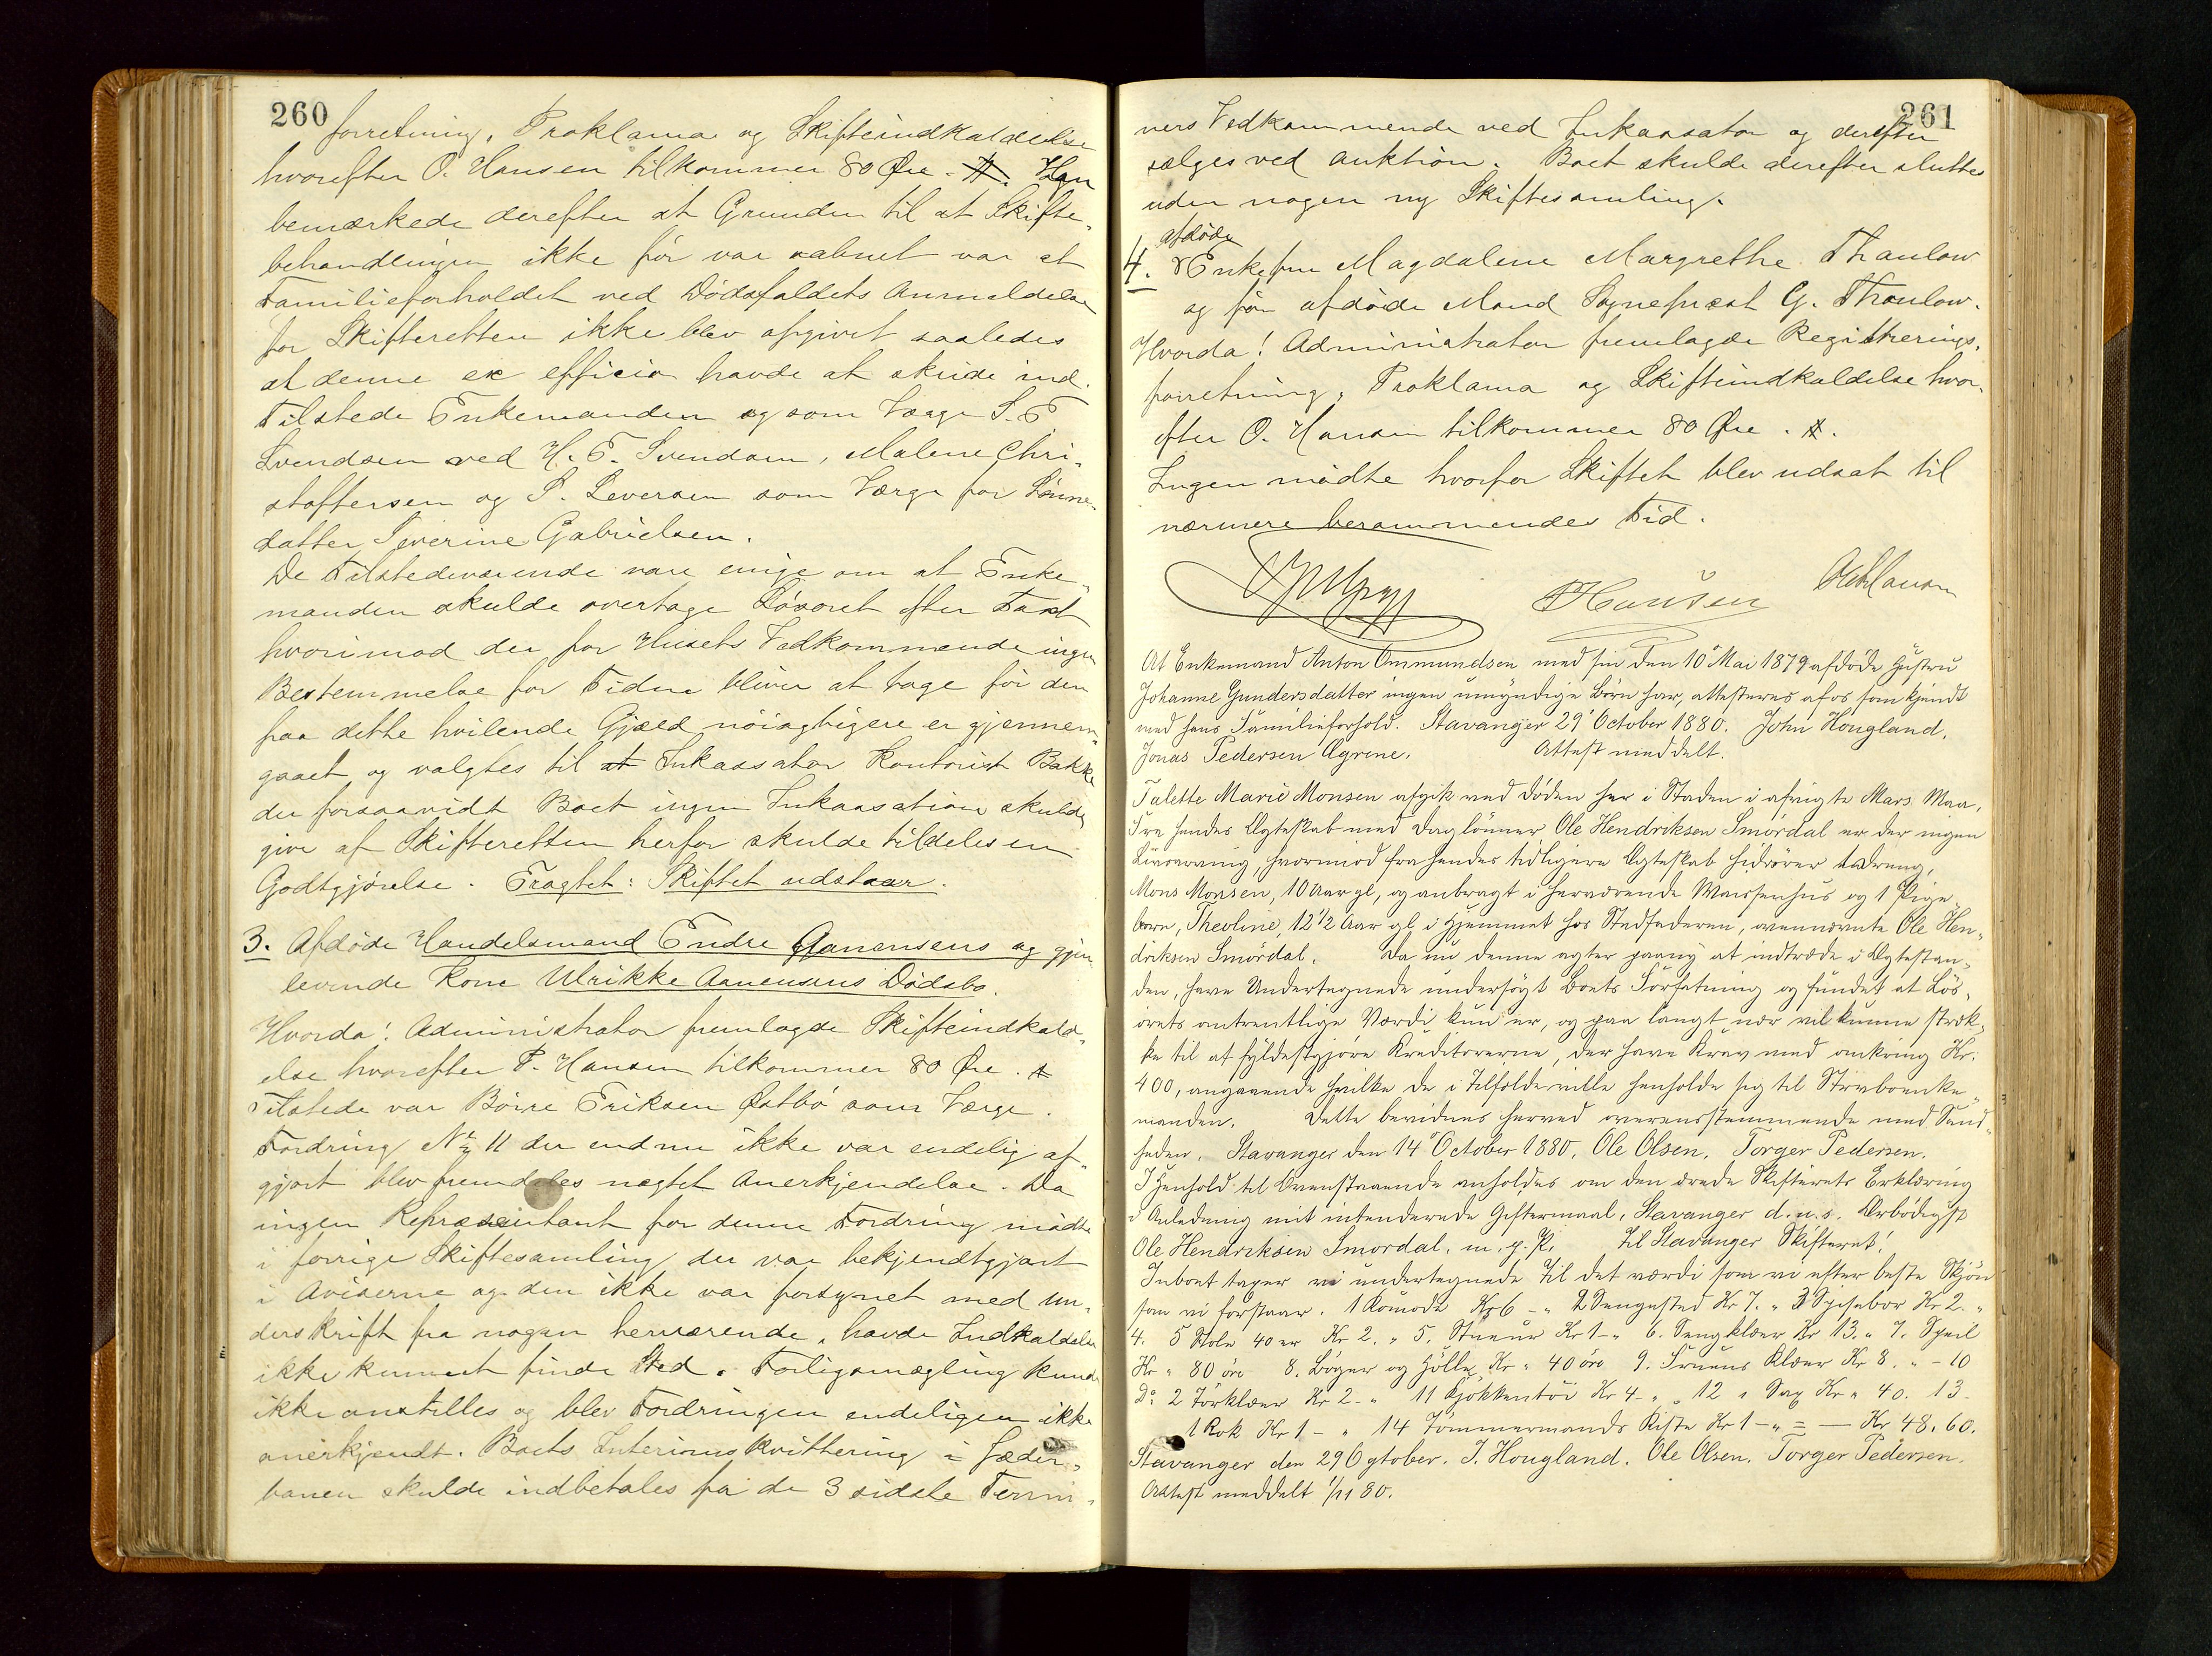 260
forretning, Proklama og Skifteindkaldelse
hvorefter O. Hansen tilkommer 80 Øre. Han
bemærkede derefter at Grunden til at Skifte-
behandlingen ikke før var aabnet var at
Familieforholdet ved Dødsfaldets Anmeldelse
for Skifteretten ikke blev opgivet saaledes
at denne ex officio havde at skride ind.
Tilstede Enkemanden og som Værge S. T
Svendsen ved H. T. Svendsen, Malene Chri-
stoffersen og S. Seversen som Værge for Sønne-
datter Severine Gabrielsen.
De Tilstedeværende vare enige om at Enke-
manden skulde overtage Løsøret efter Taxt
hvorimod der for Husets Vedkommende ingen
Bestemmelse for Tiden bliver at tage før den
paa dette hvilende Gjæld nøiagtigere er gjennem-
gaaet og valgtes til at Inkassator Kontorist Bakke
der forsaavidt Boet ingen Inkassation skulde
give af Skifteretten herfor skulde tildeles en
Godtgjørelse. Fragtet: Skiftet udstaar.
3. Afdøde Handelsmand Endre Aanensens og gjen-
levende Kone Ulrikke Aanensens Dødsbo.
Hvorda! Administrator fremlagde Skifteindkald-
else hvorefter P. Hansen tilkommer 80 Øre.
Tilstede var Børre Eriksen Østbø som Værge.
Fordring No 11 der endnu ikke var endelig af-
gjort blev fremdeles negtet Anerkjendelse. Da
ingen Repræsentant for denne Fordring mødte
i forrige Skiftesamling der var bekjendtgjort
i Aviserne og den ikke var forsynet med un-
derskrift fra nogen herværende, havde Indkaldelse
ikke kunnet finde Sted. Forligsmægling kunde
ikke anstilles og blev Fordringen endeligen ikke
anerkjendt. Boets Interimskvittering i Jæder-
banen skulde indbetales for de 3 sidste Termi-
261
ners Vedkommende ved Inkassator og derefter
sælges ved Auktion. Boet skulde derefter sluttes
uden nogen ny Skiftesamling.
afdøde
4. Enkefru Magdalene Margrethe Thaulow
og før afdøde Mand Sogneprest G. Thaulow.
Hvorda! Administrator fremlagde Registrerings-
forretning, Proklama og Skifteindkaldelse hvor-
efter O. Hansen tilkommer 80 Øre.
Ingen mødte hvorfor Skiftet blev udsat til
nærmere berammendes Tid.
PHansen
At Enkemand Anton Ommundsen med sin den 10de Mai 1879 afdøde Hustru
Johanne Gundersdatter ingen umyndige Børn har, attesteres af os som kjendt
med hans Familieforhold. Stavanger 29' October 1880. John Hougland,
Jonas Pedersen Øgrene. Attest meddelt.
Talette Marie Monsen afgik ved Døden her i Staden i afvigte Mars Maa,
Fra hendes Ægteskab med Daglønner Ole Hendriksen Smørdal er der ingen
Livsarving, hvorimod fra hendes tidligere Ægteskab hidrører tvedreng,
Mons Monsen, 10 Aar gl, og anbragt i herværende Waisenhus og 1 Pige-
barn, Theoline, 12 1/2 Aar gl i Hjemmet hos Stedfaderen, ovennævnte Ole Hen-
driksen Smørdal. Da nu denne agter paany at indtræde i Ægtestan-
den, have Undertegnede undersøgt Boets Forfatning og fundet at Løs-
ørets omtrentlige Værdi kun er, og paa langt nær vil kunne stræk-
ke til at fyldestgjøre Kreditorerne, der have Krav med omkring Kr.
400, angaaende hvilke de i Tilfælde ville henholde sig til Stervboenke-
manden. Dette bevidnes herved overensstemmende med Sand-
heden. Stavanger den 14' October 1880. Ole Olsen. Torger Pedersen.
I Henhold til Ovenstaaende anholdes om den ærede Skifterets Erklæring
i Anledning mit intenderede Giftermaal, Stavanger d. u. s. Ærbødigst
Ole Hendriksen Smordal. m. p. P. Til Stavanger Skifteret!
Inboet taxer vi undertegnede til det værdi som vi efter beste Skjøn
som vi forstaar. 1 Komode Kr 6 - " 2 Sengested Kr 7. " 3 Spisebor Kr 2. "
4. 5 Stole 40 er Kr 2. " 5. Stueur Kr 1 - " 6. Sengklær Kr 13. " 7. Speil
Kr " 80 øre 8. Bøger og Hølle Kr " 40 øre 9. Fruens Klæer Kr 8. " - 10
Do 2 Tørklær Kr 2 - " 11 Kjøkkentøi Kr 4 - " 12 1 Sax Kr " 40. 13
1 Rok Kr 1 - " 14 Tømmermands Kiste Kr 1 - " = — Kr 48,60.
Stavanger den 29 Ogtober. J. Hougland. Ole Olsen. Torger Pedersen.
Attest meddelt 1/11 80.